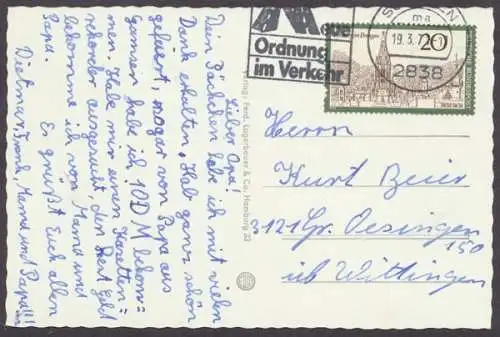 Lieber Opa!
Dein Päckchen habe ich mit vielen
Dank erhalten. Hab ganz schön
gefeiert, sogar von Papa aus
Gamsen habe ich 10 DM bekom=
men. Habe mir einen Karetten=
schoner ausgesucht, den Rest Geld
bekomme ich von Mama und
Papa.
Es grüßt Euch allen
Dietmar, Frank, Mama und Papa!!!
Verlag: Ferd. Lagerbauer & Co, Hamburg 33
Neue
Ordnung
im Verkehr
19.3.7
ma
2838
20
Herrn
Kurt Beier
3121 Gr. Oesingen
150
üb Wittingen